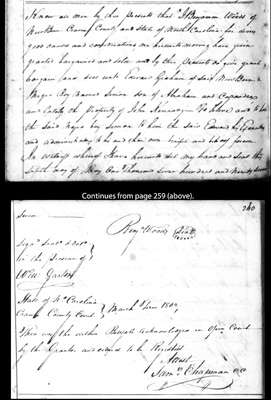 Know all men by these presents that I Benjamin Woods of
New Bern Craven County and State of North Carolina for divers
good causes and considerations me hereunto moving have given
granted bargained and sold and by this presents do give grant
bargain and sell unto Edward Graham of said New Bern a
Negro Boy named Simeon son of Abraham and
and lately the property of John To have and to hold
the said Negro boy Simeon to him the said Edward
and administrators his and their own use and behoof forever
In witness whereof I have hereunto set my hand and seal this
day of May One thousand seven hundred and ninety
Continues from page 259 (above).
260
Seven
Benj Woods Seal
Sign'd Seal'd & Del'd
in the presence of
Will Gaston
State of No Carolina
Craven County Court
March Term 1802
Then was the within Bill of Sale acknowledged in Open Court
by the Grantor and ordered to be Registered
Attest
Sam'l Chapman CC